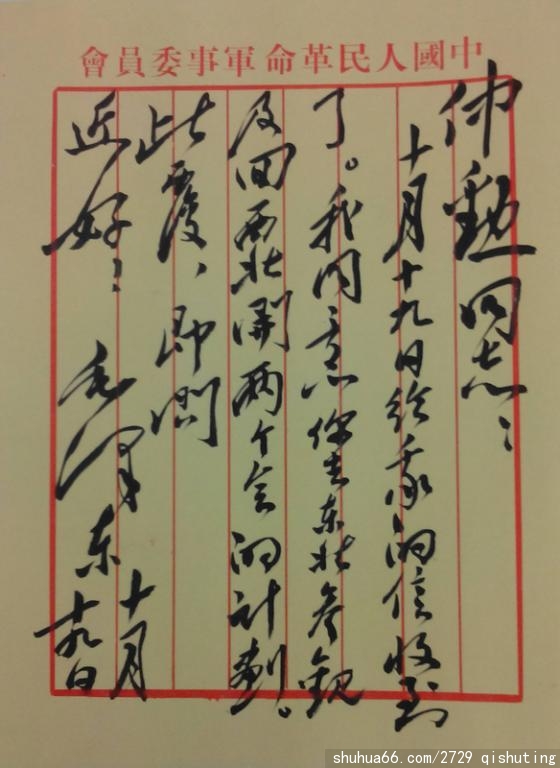 中國人民革命軍事委員會
仲勳同志：
十月十九日给我的信收到
了。我同意你去东北参观
及回西北開两个会的计劃。
此覆、即问
近好！
毛泽东
十月
十九日
shuhua66.com/2729 qishuting